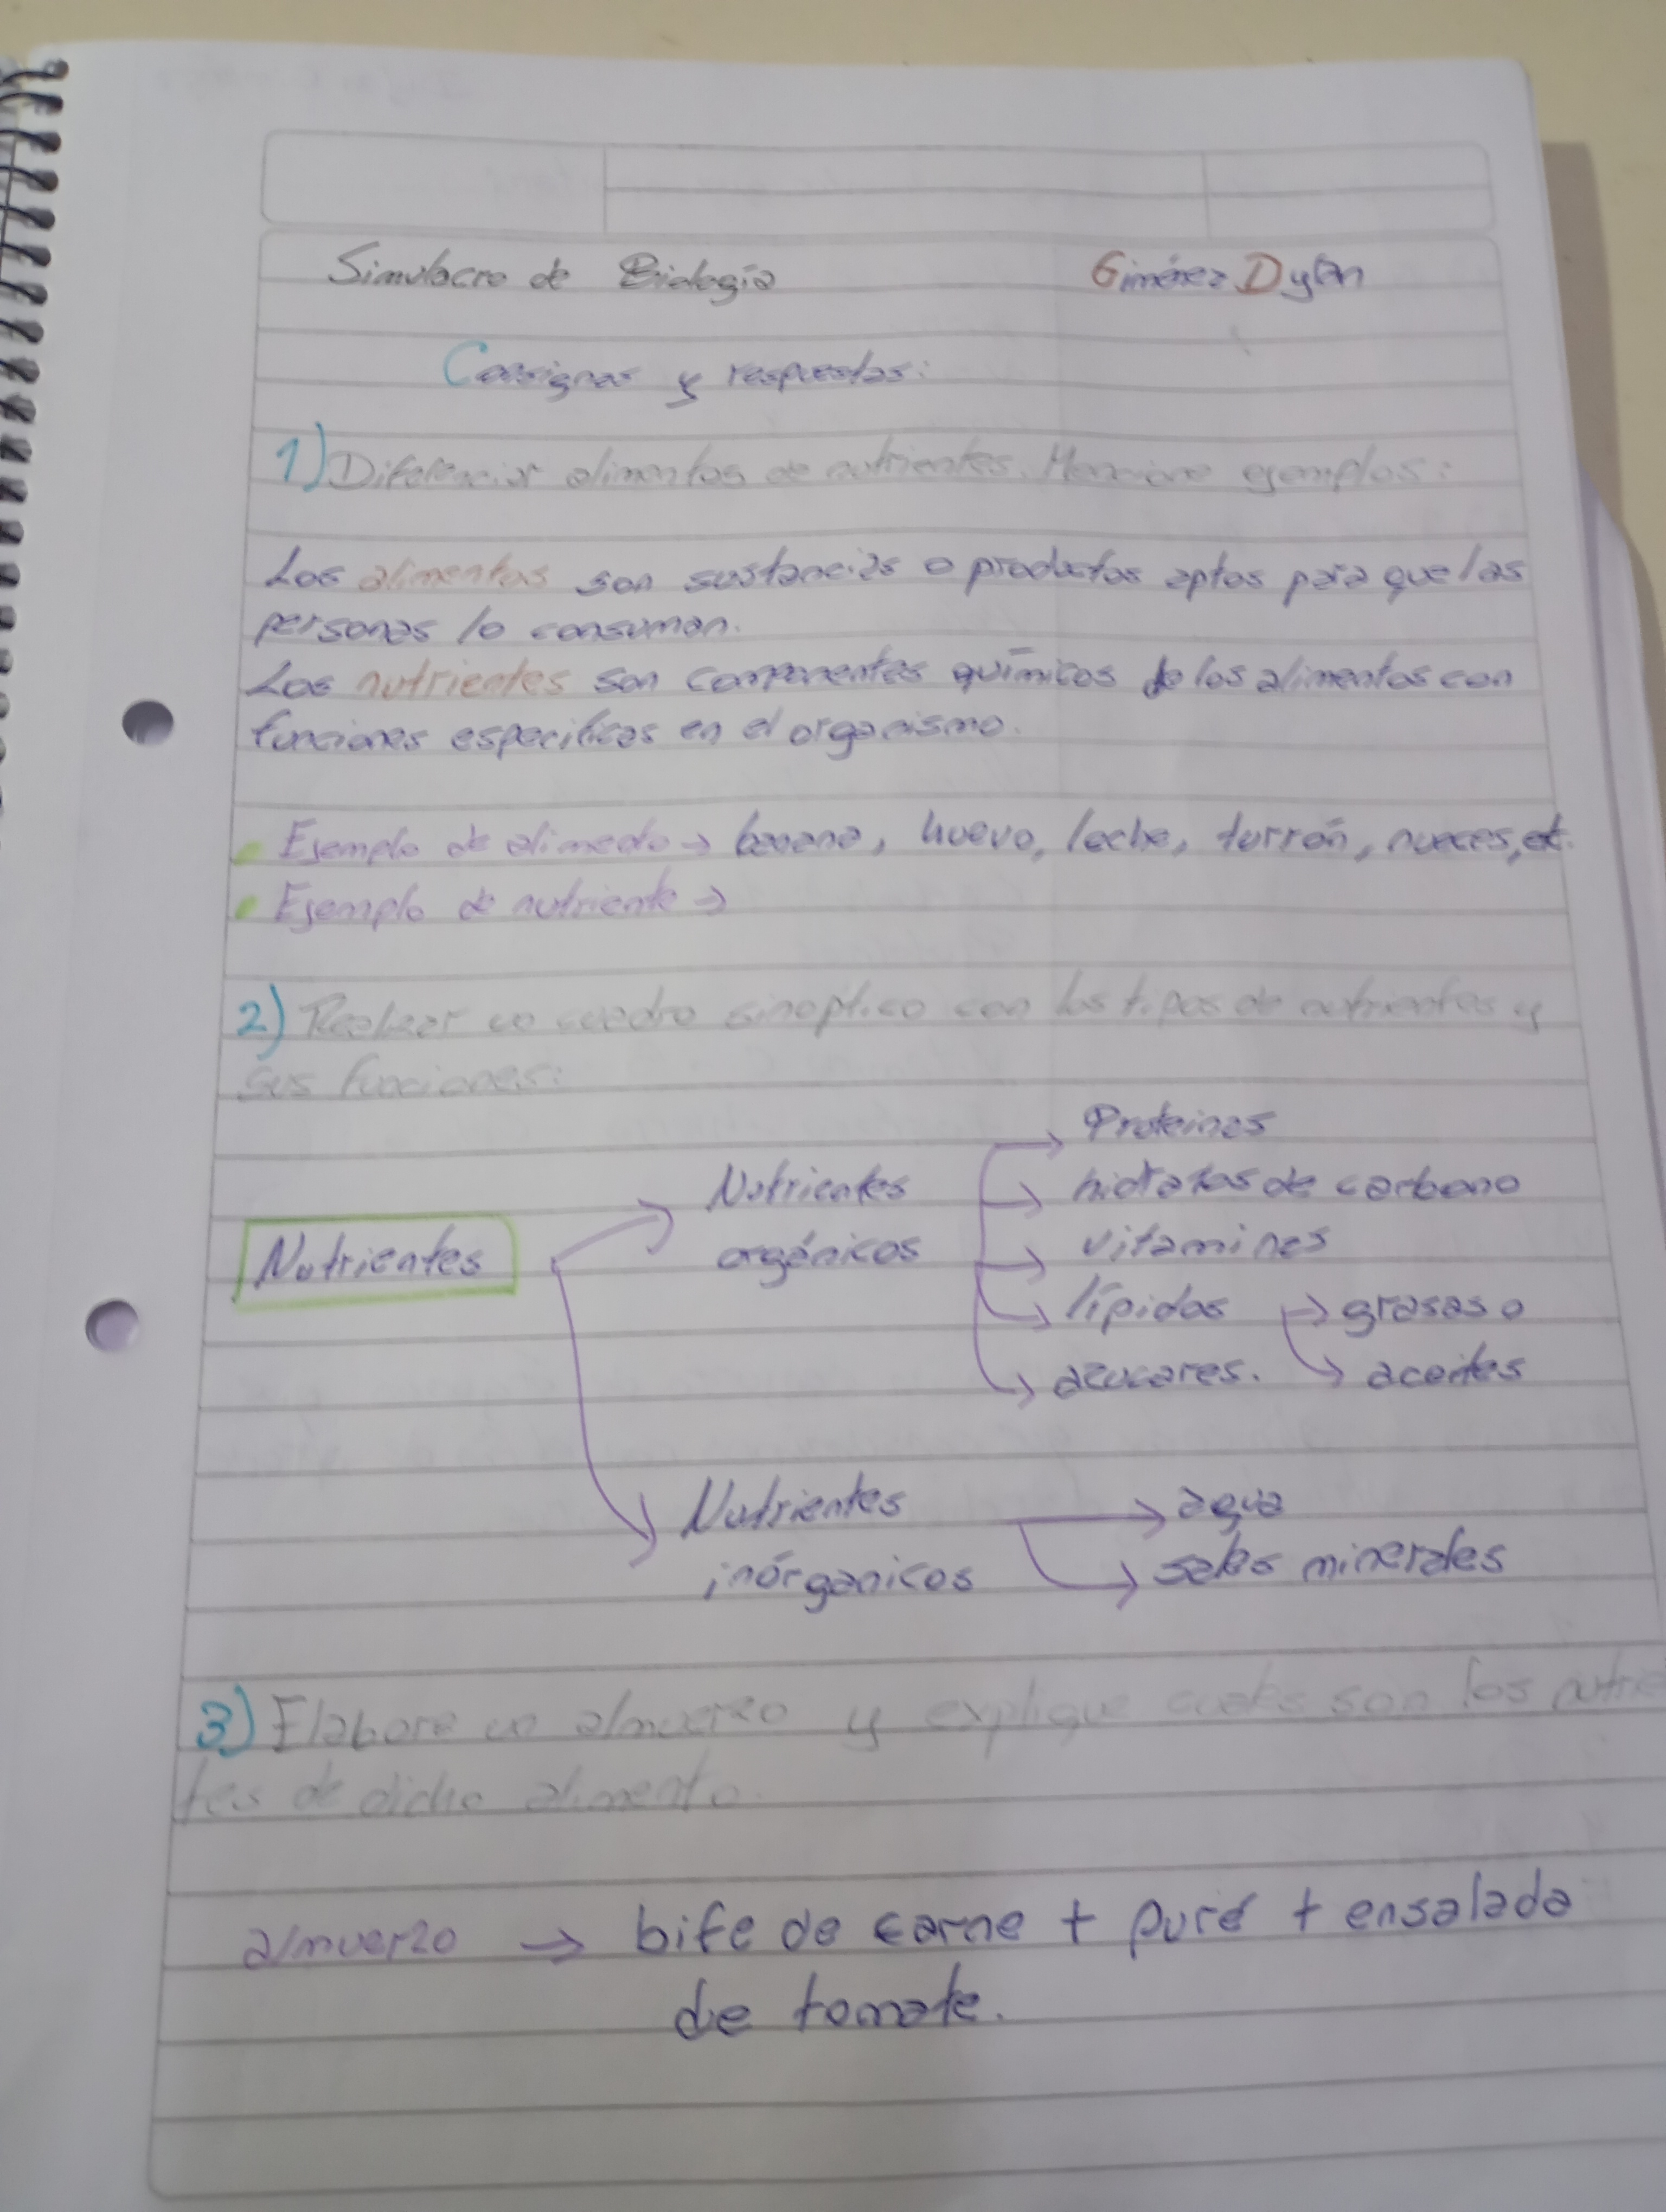 Simulacro de Biología Giménez Dylan
Consignas y respuestas:
1) Diferenciar alimentos de nutrientes. Mencione ejemplos:
Los alimentos son sustancias o productos aptos para que las
personas lo consuman.
Los nutrientes son componentes químicos de los alimentos con
funciones especificas en el organismo.
Ejemplo de alimento → banana, huevo, leche, turrón, nueces, et.
Ejemplo de nutriente →
2) Realizar un cuadro sinoptico con los tipos de nutrientes y
sus funciones:
Proteinas
Nutrientes hidratos de carbono
Nutrientes orgánicos vitaminas
lípidos → grasas o
azucares. → aceites
Nutrientes → agua
inórganicos → sales minerales
3) Elabore un almuerzo y explique cuales son los nutrie
tes de dicho alimento.
almuerzo → bife de carne + puré + ensalada
de tomate.